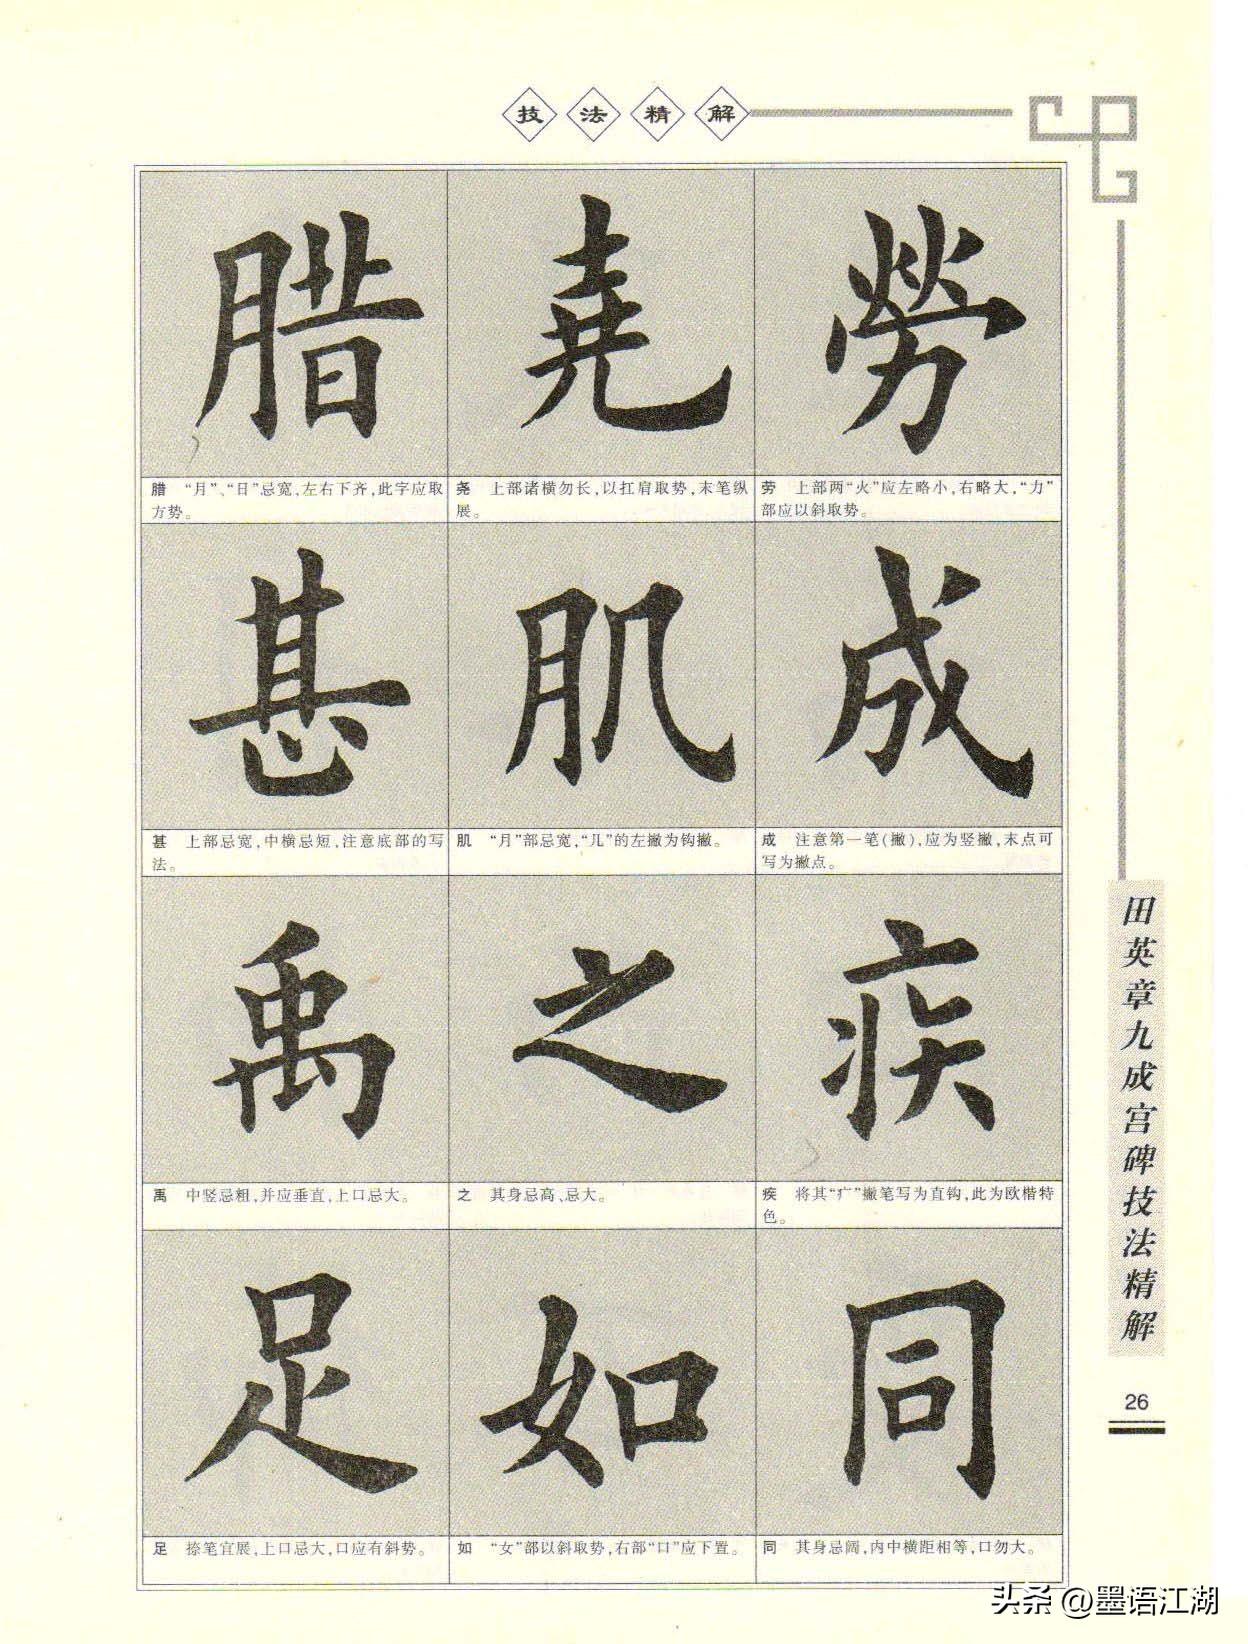 技法精解
腊 尧 劳
腊 “月”、“日”忌宽,左右下齐,此字应取
方势。
尧 上部诸横勿长,以扛肩取势,末笔纵
展。
劳 上部两“火”应左略小,右略大,“力”
部应以斜取势。
甚 肌 成
甚 上部忌宽,中横忌短,注意底部的写
法。
肌 “月”部忌宽,“几”的左撇为钩撇。
成 注意第一笔(撇),应为竖撇,末点可
写为撇点。
禹 之 疾
禹 中竖忌粗,并应垂直,上口忌大。
之 其身忌高、忌大。
疾 将其“疒”撇笔写为直钩,此为欧楷特
色。
足 如 同
足 捺笔宜展,上口忌大,口应有斜势。
如 “女”部以斜取势,右部“口”应下置。
同 其身忌阔,内中横距相等,口勿大。
田英章九成宫碑技法精解
26
头条 @墨语江湖